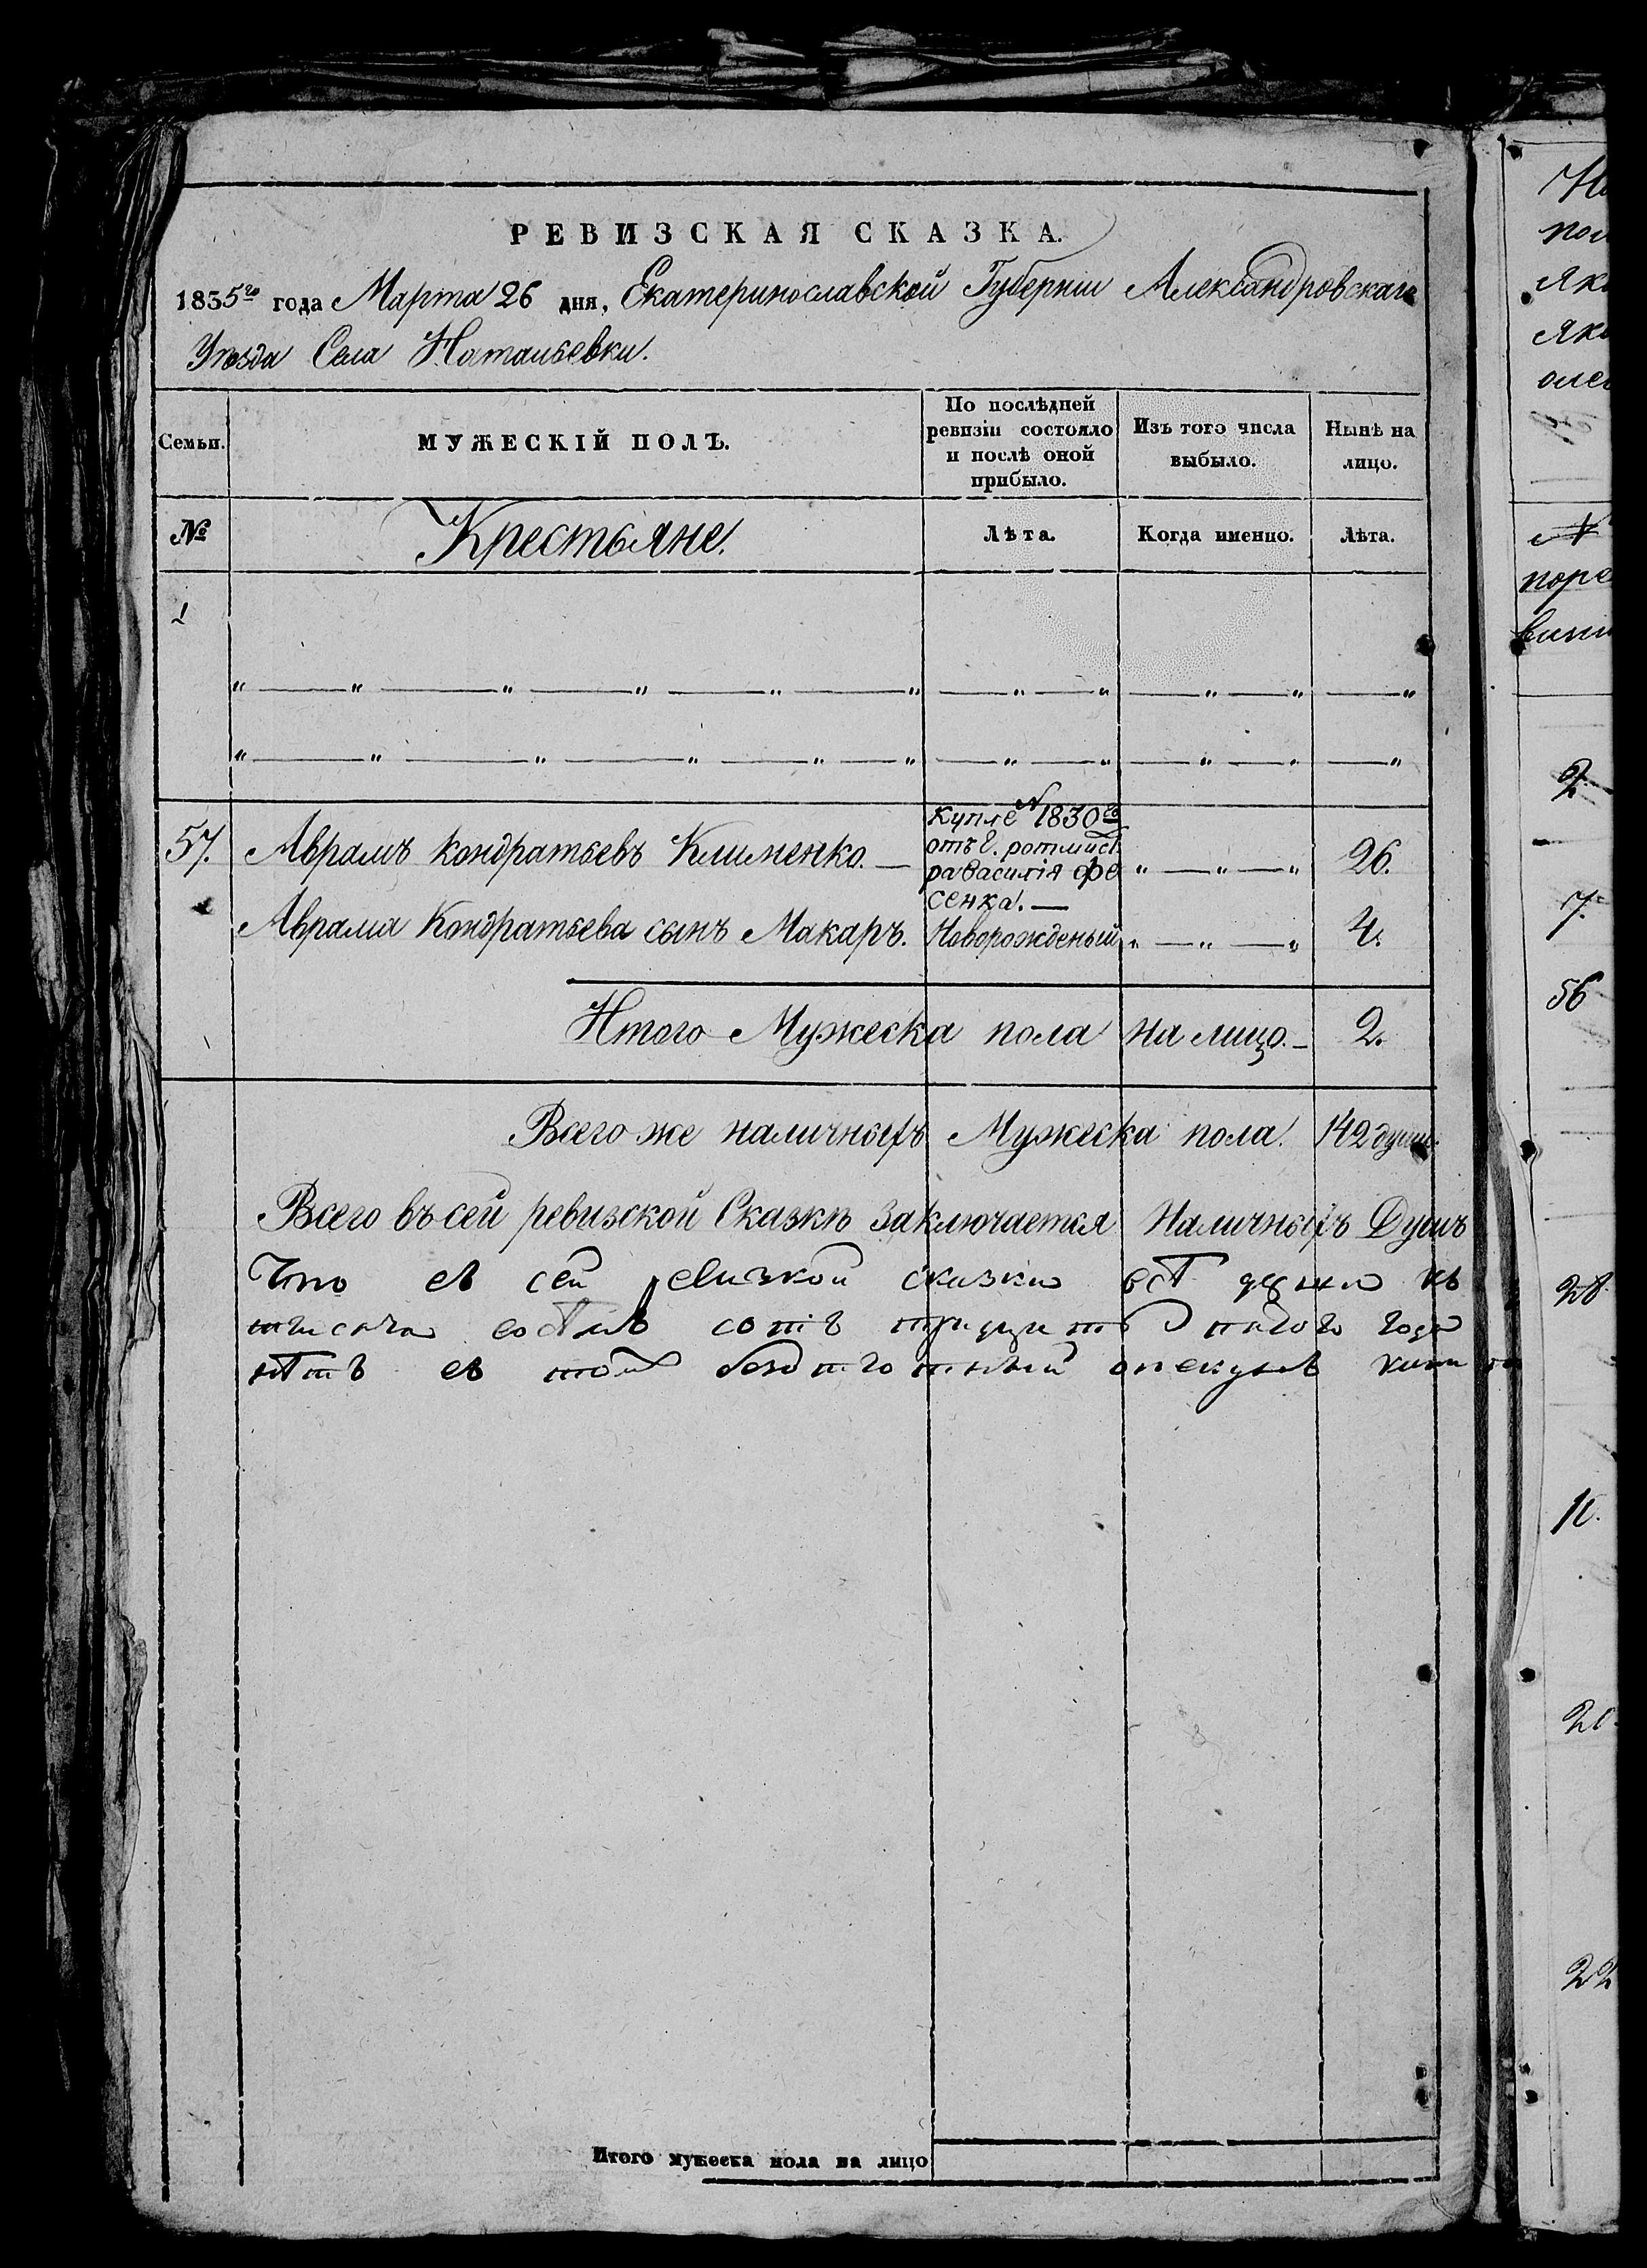 РЕВИЗСКАЯ СКАЗКА.
1835го года Марта 26 дня, Екатеринославской Губерніи Александровскаго
Уѣзда Села Натальевки.
Семьи.
МУЖЕСКІЙ ПОЛЪ.
По послѣдней
ревизіи состояло
и послѣ оной
прибыло.
Изъ того числа
выбыло.
Нынѣ на
лицо.
№
Крестьяне.
Лѣта.
Когда именно.
Лѣта.
1
57. Аврамъ Кондратьевъ Клименко. —
Куплен 1830го
отъ г. ротмист
ра Василія Фе
сенка. —
26.
Аврама Кондратьева сынъ Макаръ. Новорожденый 4.
Итого Мужеска пола на лицо. — 2.
Всего же наличныхъ Мужеска пола. 142 души.
Всего въ сей ревизской Сказкѣ заключается Наличныхъ Душъ
Что въ сей
сотъ
въ томъ опекунъ
Итого мужеска пола на лицо
2
7.
56
28
20
22